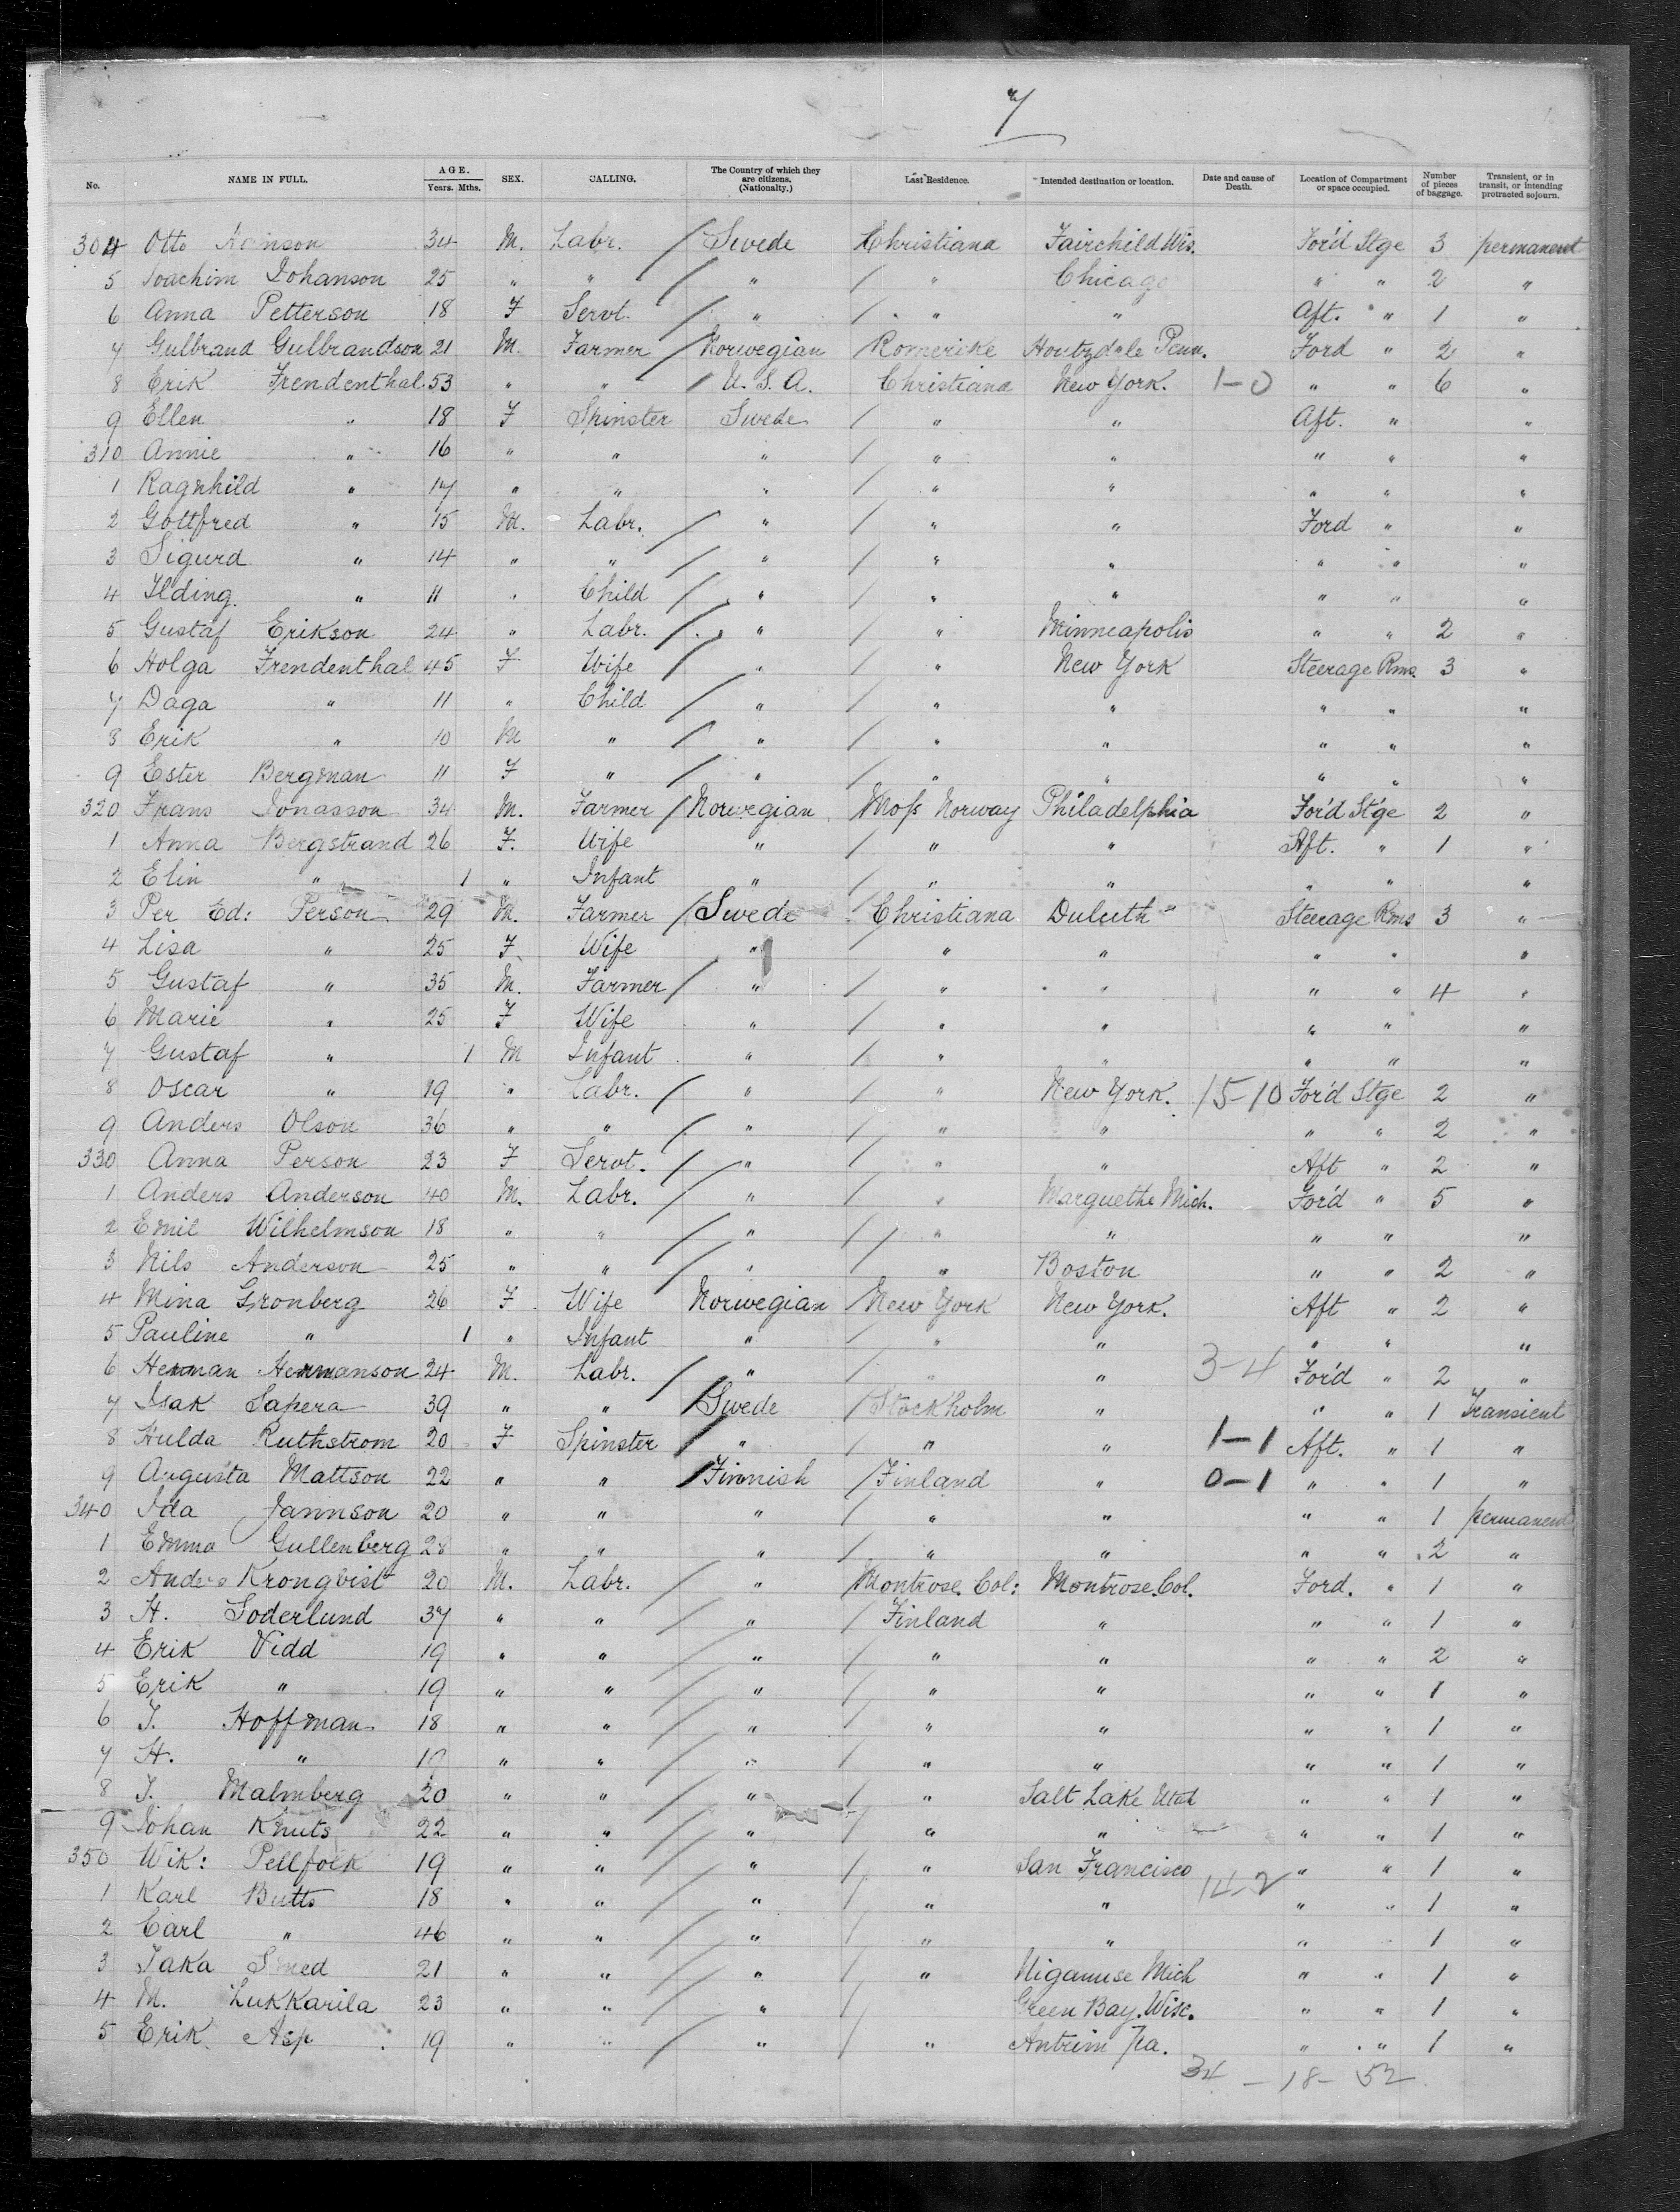 7
No. NAME IN FULL. AGE. Years. Mths. SEX. CALLING. The Country of which they are citizens. (Nationalty.) Last Residence. Intended destination or location. Date and cause of Death. Location of Compartment or space occupied. Number of pieces of baggage. Transient, or in transit, or intending protracted sojourn.
304 Otto 34 M. Labr. / Swede Christiana Fairchild Wis. For'd Stge 3 permanent
5 Joachim Johanson 25 " " / " / " Chicago " " 2 "
6 Anna Petterson 18 F Servt. / " / " " Aft. " 1 "
7 Gulbrand Gulbrandson 21 M. Farmer / Norwegian / Romerike Houtzdale Penn. Ford " 2 "
8 Erik Frendenthal 53 " " / U.S.A. Christiana New York. 1-0 " " 6 "
9 Ellen " 18 F Spinster Swede / " " Aft. " "
310 Annie " 16 " " " / " " " " "
1 Ragnhild " 17 " " " / " " " " "
2 Gottfred " 15 M. Labr. / " / " " Ford " "
3 Sigurd " 14 " " / " / " " " " "
4 Ilding " 11 " Child / " / " " " " "
5 Gustaf Erikson 24 " Labr. / " / " Minneapolis " " 2 "
6 Holga Frendenthal 45 F Wife / " / " New York Steerage Rms. 3 "
7 Daga " 11 " Child / " / " " " " "
8 Erik " 10 M " / " / " " " " "
9 Ester Bergman 11 F " / " / " " " " "
320 Frans Jonasson 34 M. Farmer / Norwegian / Moss Norway Philadelphia For'd St'ge 2 "
1 Anna Bergstrand 26 F. Wife " / " " Aft. " 1 "
2 Elin " 1 " Infant " / " " " " "
3 Per Ed: Person 29 M. Farmer / Swede Christiana Duluth Steerage Rms 3 "
4 Lisa " 25 F. Wife " " " " " "
5 Gustaf " 35 M. Farmer / " / " " " " 4 "
6 Marie " 25 F Wife " / " " " " "
7 Gustaf " 1 M Infant " / " " " " "
8 Oscar " 19 " Labr. / " / " New York. 15-10 For'd Stge 2 "
9 Anders Olson 36 " " / " / " " " " 2 "
330 Anna Person 23 F Servt. / " / " " Aft " 2 "
1 Anders Anderson 40 M. Labr. / " / " Marguethe Mich. For'd " 5 "
2 Emil Wilhelmson 18 " " / " / " " " " "
3 Nils Anderson 25 " " / " / " Boston " " 2 "
4 Mina Gronberg 26 F. Wife Norwegian / New York New York. Aft " 2 "
5 Pauline " 1 " Infant " / " " " " "
6 Herman Hermanson 24 M. Labr. / " / " " 3-4 For'd " 2 "
7 Isak Sapera 39 " " / Swede / Stockholm " " " 1 Transient
8 Hulda Ruthstrom 20 F Spinster / " / " " 1-1 Aft. " 1 "
9 Augusta Mattson 22 " " / Finnish / Finland " 0-1 " " 1 "
340 Ida Jannson 20 " " " / " " " " 1 permanent
1 Emma Gullenberg 28 " " " / " " " " 2 "
2 Anders Krongvist 20 M. Labr. / " Montrose. Col: Montrose. Col. Ford. " 1 "
3 H. Soderlund 37 " " / " / Finland " " " 1 "
4 Erik Vidd 19 " " / " / " " " " 2 "
5 Erik " 19 " " / " / " " " " 1 "
6 J. Hoffman 18 " " / " / " " " " 1 "
7 H. " 19 " " / " / " " " " 1 "
8 J. Malmberg 20 " " / " / " Salt Lake Utah " " 1 "
9 Johan Knuts 22 " " / " / " " " " 1 "
350 Wik: Pellfolk 19 " " / " / " San Francisco " " 1 "
1 Karl Butts 18 " " / " / " " 14-2 " " 1 "
2 Carl " 46 " " / " / " " " " 1 "
3 Jaka Smed 21 " " / " / " Nigaunse Mich " " 1 "
4 M. Lukkarila 23 " " / " / Green Bay. Wisc. " " 1 "
5 Erik Asp 19 " " / " / " Antrim Pa. " " 1 "
34 - 18 - 52